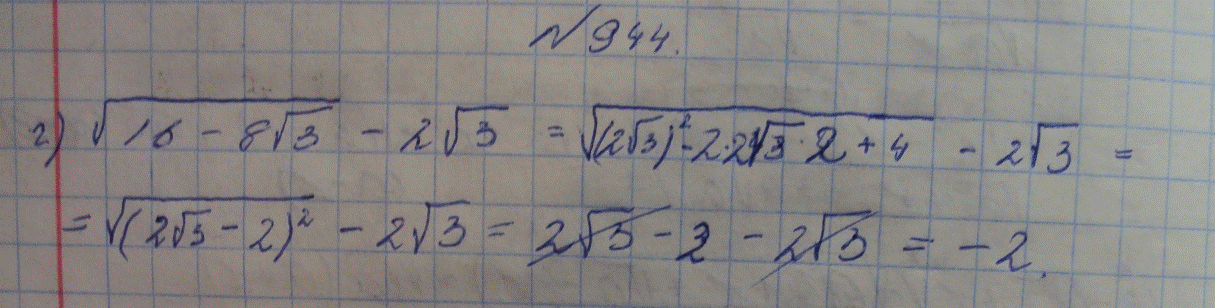 №944.
г) √(16 - 8√3) - 2√3 = √((2√3)² - 2·2√3·2 + 4) - 2√3 =
= √((2√3 - 2)²) - 2√3 = 2√3 - 2 - 2√3 = -2.